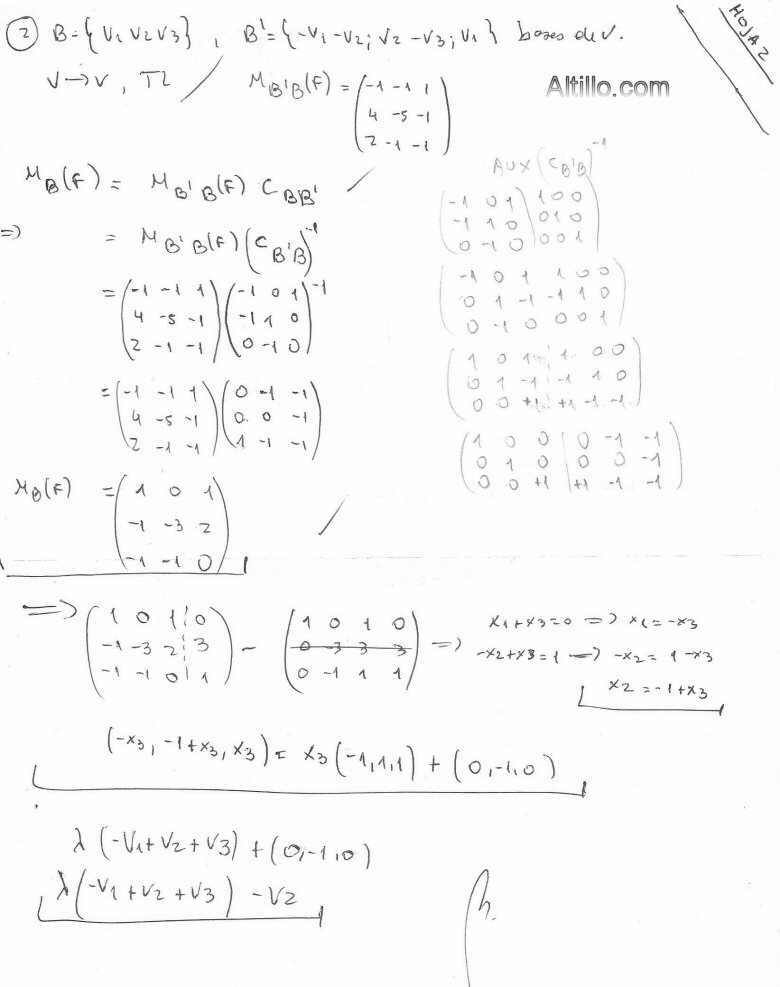 HOJA 2
② B = { V1 V2 V3 } , B' = { -V1 - V2; V2 - V3; V1 } bases de V.
V → V , TL    M_B'B(F) = ( -1 -1 1
4 -5 -1
2 -1 -1 )
Altillo.com
M_B(F) = M_B'B(F) C_BB'
=> = M_B'B(F) (C_B'B)^-1
= ( -1 -1 1   ( -1 0 1
4 -5 -1   -1 1 0
2 -1 -1 )   0 -1 0 )^-1
= ( -1 -1 1   ( 0 -1 -1
4 -5 -1   0 0 -1
2 -1 -1 )   1 -1 -1 )
M_B(F) = ( 1 0 1
-1 -3 2
-1 -1 0 )
AUX (C_B'B)^-1
( -1 0 1 | 1 0 0
-1 1 0 | 0 1 0
0 -1 0 | 0 0 1 )
( -1 0 1 1 0 0
0 1 -1 -1 1 0
0 -1 0 0 0 1 )
( 1 0 1 1 0 0
0 1 -1 -1 1 0
0 0 +1 +1 -1 -1 )
( 1 0 0 | 0 -1 -1
0 1 0 | 0 0 -1
0 0 +1 | +1 -1 -1 )
=> ( 1 0 1 | 0   ~ ( 1 0 1 0   => x1 + x3 = 0 => x1 = -x3
-1 -3 2 | 3   0 -3 3 3   -x2 + x3 = 1 => -x2 = 1 - x3
-1 -1 0 | 1 )   0 -1 1 1 )   x2 = -1 + x3
(-x3, -1+x3, x3) = x3 (-1,1,1) + (0,-1,0)
λ (-V1 + V2 + V3) + (0,-1,0)
λ (-V1 + V2 + V3) - V2